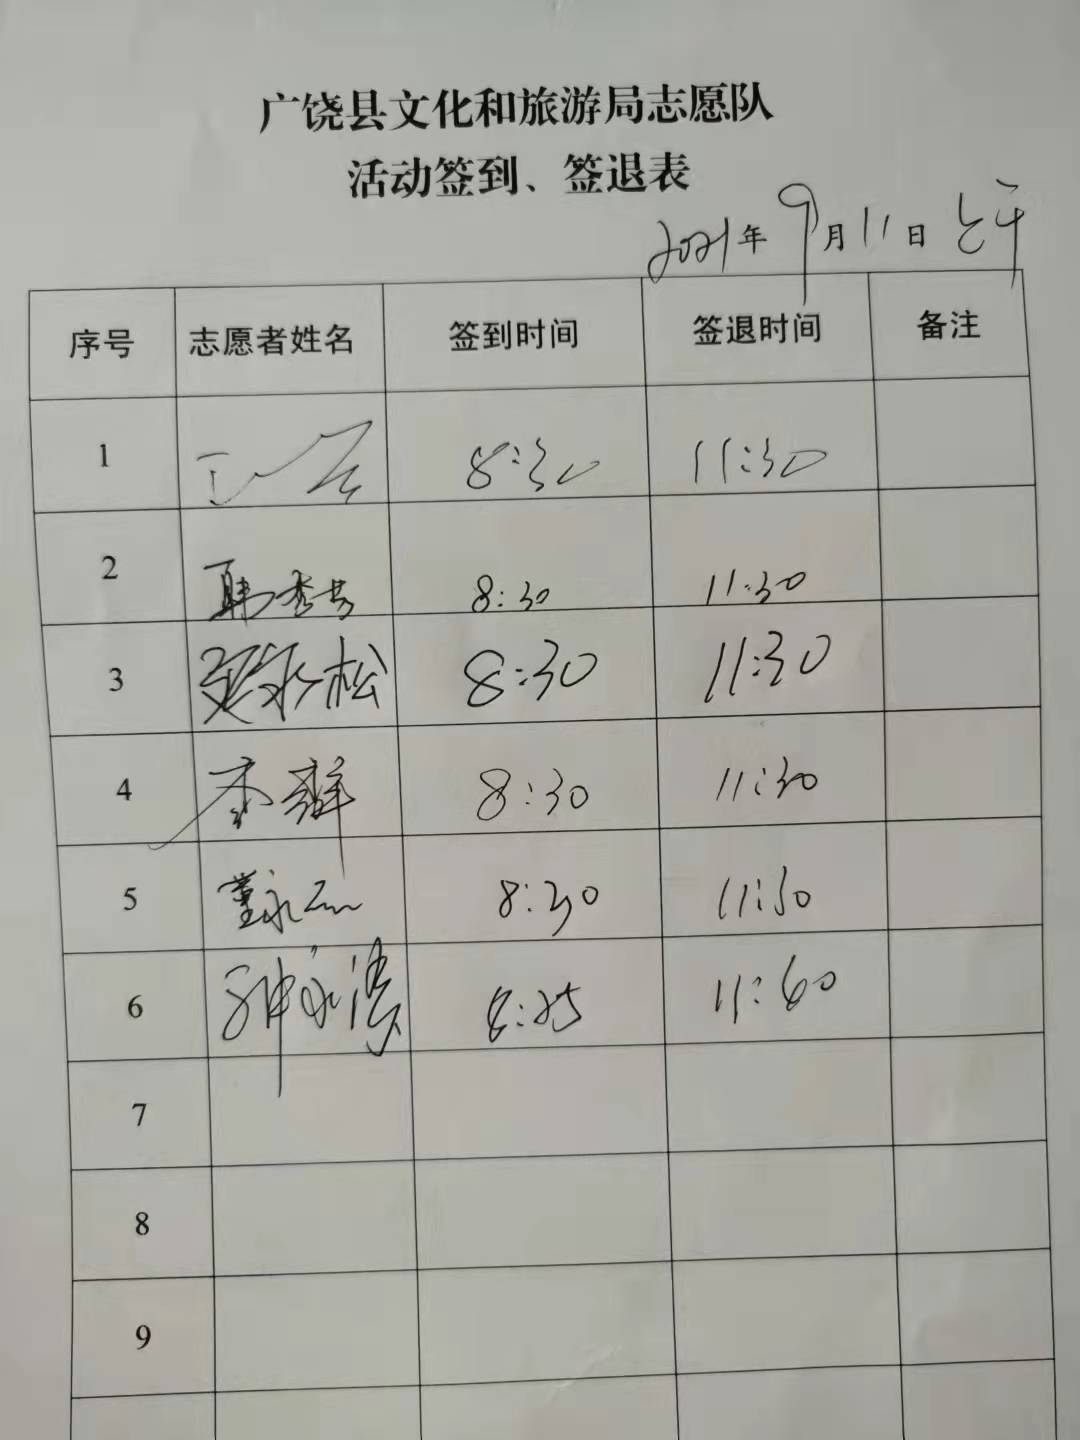 广饶县文化和旅游局志愿队
活动签到、签退表
2021年9月11日上午
序号 志愿者姓名 签到时间 签退时间 备注
1 8:30 11:30
2 韩秀芳 8:30 11:30
3 永松 8:30 11:30
4 8:30 11:30
5 董永 8:30 11:30
6 永涛 8:25 11:60
7
8
9